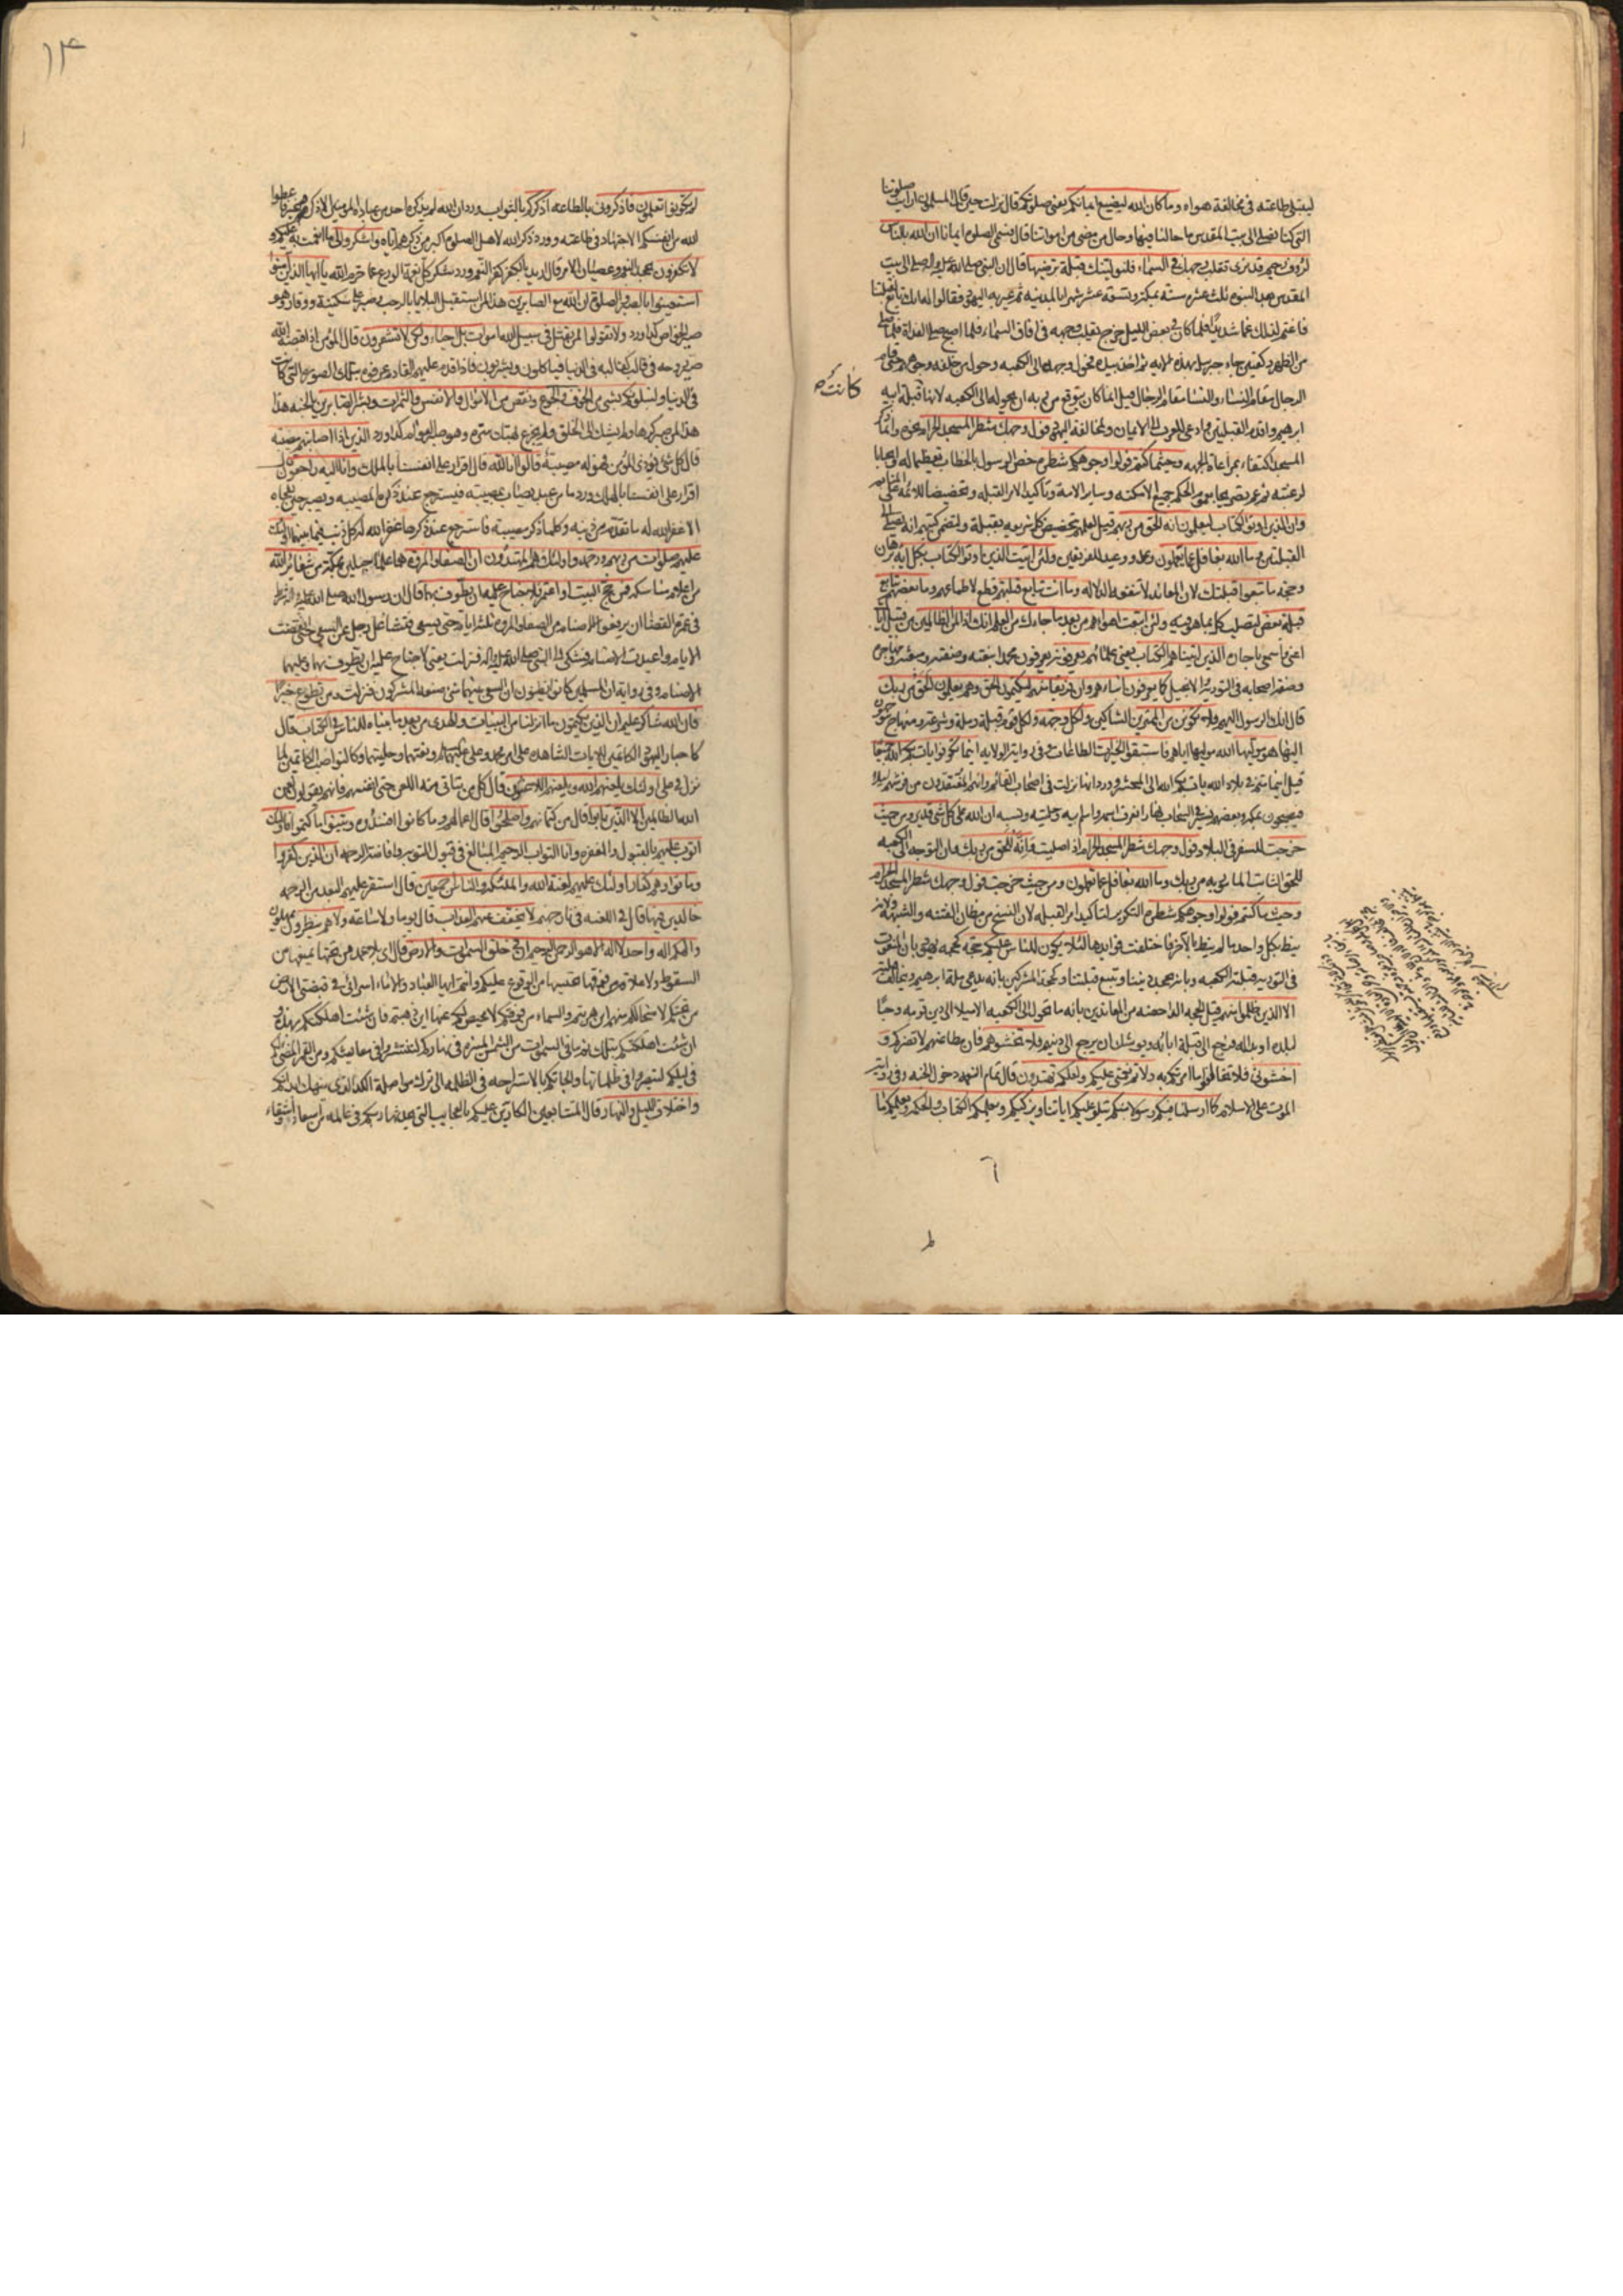 ليتبين طاعته في مخالفة هواه وما كان الله ليضيع ايمانكم يعني صلوتكم قال نزلت حين قال المسلمون ارايت صلوتنا
التي كنا نصلي الى بيت المقدس ما حالنا فيها وحال من مضى من امواتنا قال فسمى الصلوة ايمانا ان الله بالناس
لرؤف رحيم قد نرى تقلب وجهك في السماء فلنولينك قبلة ترضيها قال ان النبي صلى الله عليه واله صلى الى بيت
المقدس بعد النبوة ثلث عشرة سنة بمكة وتسعة عشر شهرا بالمدينة ثم عيره اليهود فقالوا له انك تابع لقبلتنا
فاغتم لذلك غما شديدا فلما كان في بعض الليل خرج يقلب وجهه في افاق السماء فلما اصبح صلى الغداة فلما صلى
من الظهر ركعتين جاء جبرئيل بهذه الاية ثم اخذ بيده فحول وجهه الى الكعبة وحول من خلفه وجوههم حتى قام
الرجال مقام النساء والنساء مقام الرجال قيل انما كان يتوقع من ربه ان يحوله الى الكعبة لانها قبلة ابيه
كانت
ابرهيم واقدم القبلتين وادعى للعرب الى الايمان ولمخالفة اليهود فول وجهك شطر المسجد الحرام نحوه وانما ذكر
المسجد اكتفاء بمراعاة الجهة وحيثما كنتم فولوا وجوهكم شطره خص الرسول بالخطاب تعظيما له وايجابا
لرغبته ثم عمم تصريحا بعموم الحكم جميع الامكنة وساير الامة وتاكيدا لامر القبلة وتحضيضا للامة على المتابعة
وان الذين اوتوا الكتاب ليعلمون انه الحق من ربهم قيل لعلمهم بتخصيص كل شريعة بقبلة ولتضمن كتبهم انه يصلي الى
القبلتين وما الله بغافل عما يعملون وعد ووعيد للفريقين ولئن اتيت الذين اوتوا الكتاب بكل اية برهان
وحجة ما تبعوا قبلتك لان المعاند لا تنفعه الدلالة وما انت بتابع قبلتهم قطع لاطماعهم وما بعضهم بتابع
قبلة بعض لتصلب كل بما هو فيه ولئن اتبعت اهواءهم من بعد ما جاءك من العلم انك اذا لمن الظالمين من قبيل اياك
اعني واسمعي يا جارة الذين اتيناهم الكتاب يعني علماءهم يعرفونه يعرفون محمدا بنعته وصفته ومبعثه ومهاجره
وصفة اصحابه في التورية والانجيل كما يعرفون ابناءهم وان فريقا منهم ليكتمون الحق وهم يعلمون الحق من ربك
قال انك الرسول اليهم فلا تكونن من الممترين الشاكين ولكل وجهة ولكل قوم قبلة وملة وشرعة ومنهاج يتوجهون
اليها هو موليها الله موليها اياهم فاستبقوا الخيرات الطاعات وفي رواية الولاية اينما تكونوا يات بكم الله جميعا
قيل اينما متم في بلاد الله يات بكم الله الى المحشر وورد انها نزلت في اصحاب القائم وانهم المفتقدون من فرشهم ليلا
فيصبحون بمكة وبعضهم يسير في السحاب نهارا نعرف اسمه واسم ابيه وحليته ونسبه ان الله على كل شئ قدير ومن حيث
خرجت للسفر في البلاد فول وجهك شطر المسجد الحرام اذا صليت وانه للحق من ربك وان التوجه الى الكعبة
للحق الثابت المامور به من ربك وما الله بغافل عما تعملون ومن حيث خرجت فول وجهك شطر المسجد الحرام
وحيث ما كنتم فولوا وجوهكم شطره التكرير لتاكيد امر القبلة لان النسخ من مظان الفتنة والشبهة ولانه
ينط بكل واحد ما لم ينط بالاخر فاختلفت فوايدها لئلا يكون للناس عليكم حجة كحجة اليهود بان المنعوت
في التورية قبلته الكعبة وبانه يجحد ديننا ويتبع قبلتنا وكحجة المشركين بانه يدعي ملة ابرهيم ويخالف قبلته
الا الذين ظلموا منهم قيل الحجة الداحضة من المعاندين بانه ما تحول الى الكعبة الا ميلا الى دين قومه وحبا
لبلده او بدا له فرجع الى قبلة ابائه ويوشك ان يرجع الى دينهم فلا تخشوهم فان مطاعنهم لا تضركم و
اخشوني فلا تخالفوا ما امرتكم به ولاتم نعمتي عليكم ولعلكم تهتدون قال تمام النعمة دخول الجنة وفي رواية
الموت على الاسلام كما ارسلنا فيكم رسولا منكم يتلو عليكم اياتنا ويزكيكم ويعلمكم الكتاب والحكمة ويعلمكم ما
١٣
لم تكونوا تعلمون فاذكروني بالطاعة اذكركم بالثواب ورد ان الله لم يذكره احد من عباده المؤمنين الا ذكره بخير فاعطوا
الله من انفسكم الاجتهاد في طاعته وورد ذكر الله لاهل الصلوة اكبر من ذكرهم اياه واشكروا لي ما انعمت به عليكم و
لا تكفرون بجحد النعم وعصيان الامر قال اريد بالكفر كفر النعم وورد شكر كل نعمة الورع عما حرم الله يا ايها الذين آمنوا
استعينوا بالصبر والصلوة ان الله مع الصابرين هذا لمن استقبل البلايا بالرحب وصبر على سكينة ووقار وهو
صبر الخواص كذا ورد ولا تقولوا لمن يقتل في سبيل الله اموات بل احياء ولكن لا تشعرون قال المؤمن اذا قبضه الله
صير روحه في قالب كقالبه في الدنيا فياكلون ويشربون فاذا قدم عليهم القادم عرفوه بتلك الصورة التي كانت
في الدنيا ولنبلونكم بشئ من الخوف والجوع ونقص من الاموال والانفس والثمرات وبشر الصابرين بالجنة هذا
هذا لمن صبر كرها ولم يشك الى الخلق ولم يجزع بهتك ستره وهو صبر العوام كذا ورد الذين اذا اصابتهم مصيبة
قال كل شئ يؤذي المؤمن فهو له مصيبة قالوا انا لله قال اقرار على انفسنا بالملك وانا اليه راجعون
اقرار على انفسنا بالهلاك ورد ما من عبد يصاب بمصيبة فيسترجع عند ذكره المصيبة ويصبر حين تفجاه
الا غفر الله له ما تقدم من ذنبه وكلما ذكر مصيبة فاسترجع عند ذكرها غفر الله له كل ذنب فيما بينهما اولئك
عليهم صلوات من ربهم ورحمة واولئك هم المهتدون ان الصفا والمروة هما علما جبلين بمكة من شعائر الله
من اعلام مناسكه فمن حج البيت او اعتمر فلا جناح عليه ان يطوف بهما قال ان رسول الله صلى الله عليه واله شرط
في عمرة القضاء ان يرفعوا الاصنام من الصفا والمروة ثلثة ايام حتى يسعى فتشاغل رجل عن السعي حتى انقضت
الايام واعيدت الاصنام فشكى الى النبي صلى الله عليه واله فنزلت يعني لا جناح عليه ان يطوف بهما وعليهما
الاصنام وفي رواية ان المسلمين كانوا يظنون ان السعي بينهما شئ صنعه المشركون فنزلت ومن تطوع خيرا
فان الله شاكر عليم ان الذين يكتمون ما انزلنا من البينات والهدى من بعد ما بيناه للناس في الكتاب قال
كاحبار اليهود الكاتمين للايات الشاهدة على امر محمد وعلي عليهما السلام ونعتهما وحليتهما وكالنواصب الكاتمين لما
نزل في علي اولئك يلعنهم الله ويلعنهم اللاعنون قال كل من يتاتى منه اللعن حتى انفسهم فانهم يقولون لعن
الله الظالمين الا الذين تابوا قال من كتمانهم واصلحوا قال اعمالهم وما كانوا افسدوه وبينوا ما كتموا فاولئك
اتوب عليهم بالقبول والمغفرة وانا التواب الرحيم المبالغ في قبول التوبة وافاضة الرحمة ان الذين كفروا
وماتوا وهم كفار اولئك عليهم لعنة الله والملئكة والناس اجمعين قال استقر عليهم البعد من الرحمة
خالدين فيها قال في اللعنة في نار جهنم لا يخفف عنهم العذاب قال يوما ولا ساعة ولا هم ينظرون يمهلون
والهكم اله واحد لا اله الا هو الرحمن الرحيم ان في خلق السموات والارض قال اي بلا عمد من تحتها يمنعها من
السقوط ولا علاقة من فوقها تحبسها من الوقوع عليكم وانتم ايها العباد والاماء اسرائي في قبضتي الارض
من تحتكم لا منجا لكم منها اين هربتم والسماء من فوقكم لا محيص لكم عنها اين ذهبتم فان شئت اهلكتكم بهذه و
ان شئت اهلكتكم بتلك ثم ما في السموات من الشمس المنيرة في نهاركم لتنتشروا في معايشكم ومن القمر المضئ لكم
في ليلكم لتبصروا في ظلماتها والجائكم بالاستراحة في الظلمة الى ترك مواصلة الكد الذي ينهك ابدانكم
واختلاف الليل والنهار قال المتتابعين الكادين عليكم بالعجايب التي يحدثها ربكم في عالمه من اسعاد واشقاء